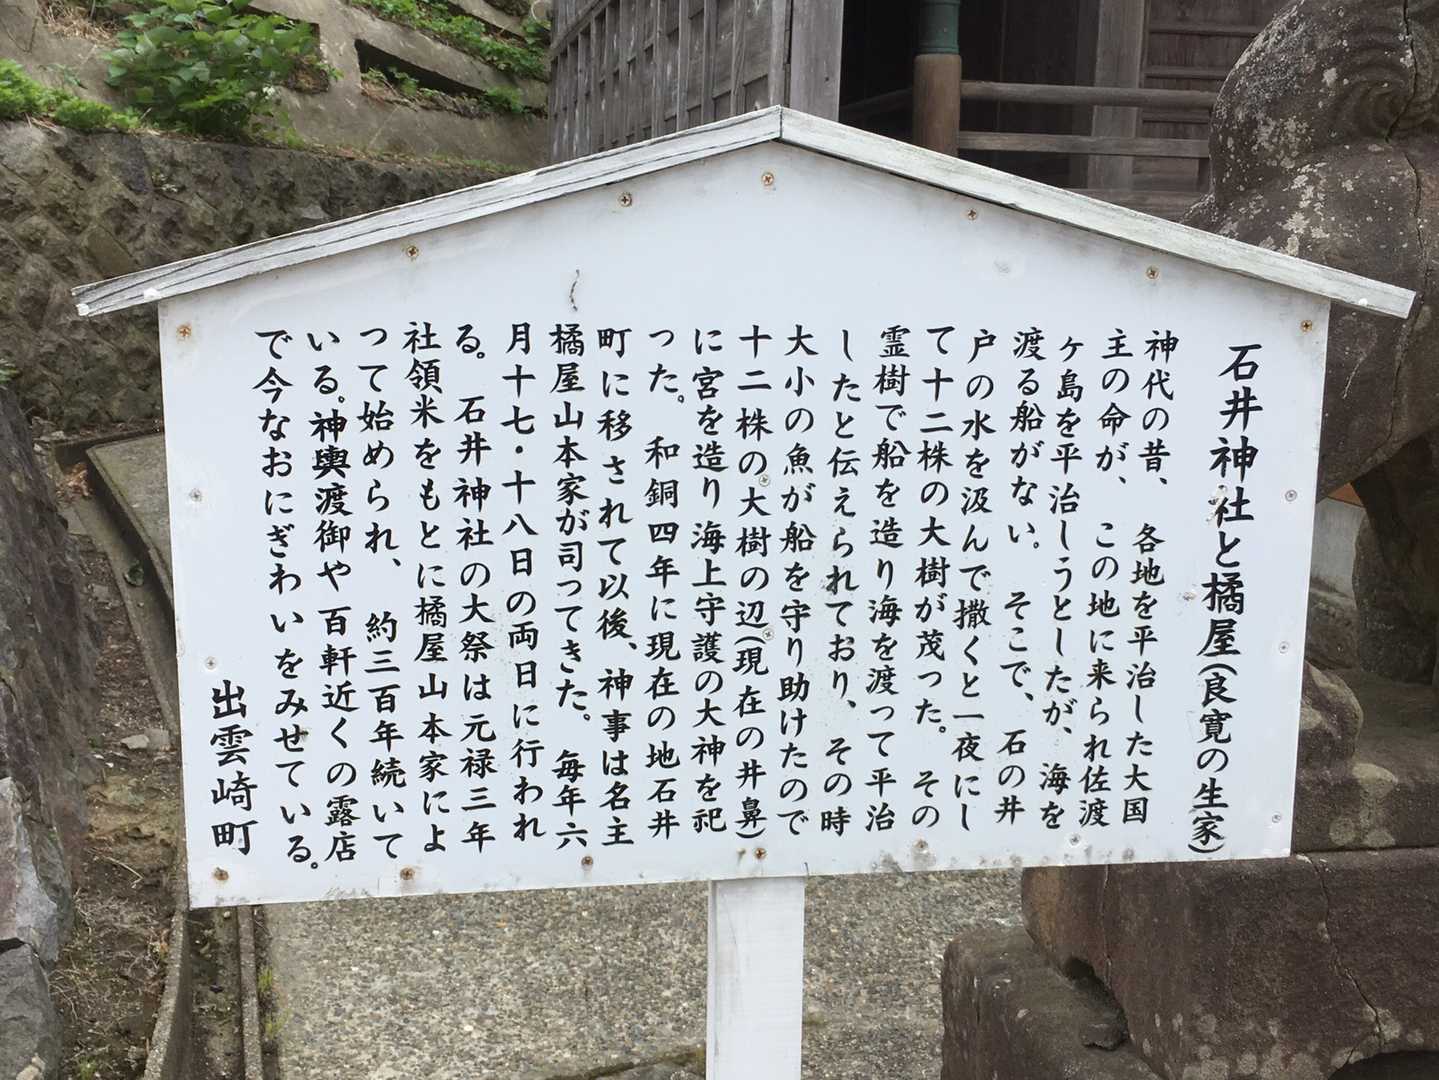 石井神社と橘屋(良寛の生家)
神代の昔、各地を平治した大国
主の命が、この地に来られ佐渡
ヶ島を平治しうとしたが、海を
渡る船がない。そこで、石の井
戸の水を汲んで撒くと一夜にし
て十二株の大樹が茂った。その
霊樹で船を造り海を渡って平治
したと伝えられており、その時
大小の魚が船を守り助けたので
十二株の大樹の辺(現在の井鼻)
に宮を造り海上守護の大神を祀
った。和銅四年に現在の地石井
町に移されて以後、神事は名主
橘屋山本家が司ってきた。毎年六
月十七・十八日の両日に行われ
る。石井神社の大祭は元禄三年
社領米をもとに橘屋山本家によ
って始められ、約三百年続いて
いる。神輿渡御や百軒近くの露店
で今なおにぎわいをみせている。
出雲崎町